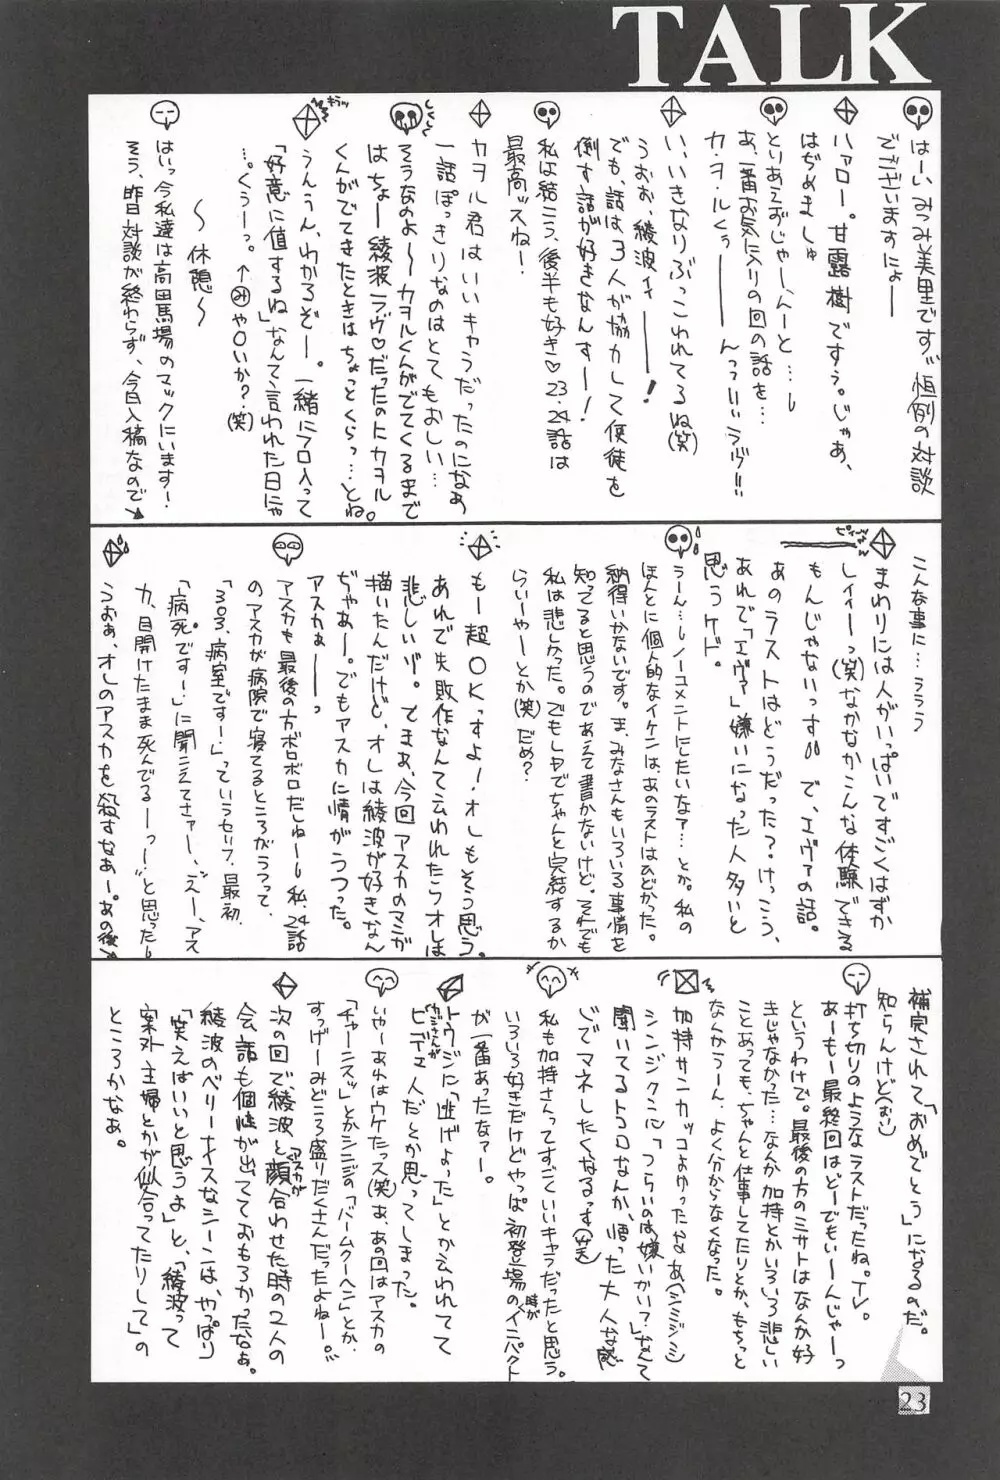 TALK
はーい、みつみ美里です。恒例の対談
でございますにょー
ハァロー。甘露樹ですぅ。じゃあ、
はぢめましゅ
とりあえずじゃーんーと…し
あ、一番お気に入りの回の話を…
カ・ヲ・ルくぅーーんっついいラヴ!!
い、いきなりぶっこわれてるね(笑)
うおぉ、綾波ィーーー!
でも、話は3人が協力して使徒を
倒す話が好きなんすー!
私は結こう、後半も好き♡23、24話は
最高ッスねー!
カヲル君はいいキャラだったのになぁ
一話ぽっきりなのはとてもおしい…
そうなのよ〜〜カヲルくんがでてくるまで
はちょー綾波ラヴ♡だったのトカヲル。
くんがでてきたときはちょっとくらっ…とね
うんうん、わかるぞー。一緒にフロ入って
「好意に値するね」なんて言われた日にゃ
…。くぅーっ。↑みや○いか?(笑)
〜休憩〜
はいっ今私達は高田馬場のマックにいます!
そう、昨日対談が終わらず、今日入稿なので↘
こんな事に…ううう
まわりには人がいっぱいですごくはずか
しィィーっ(笑)なかなかこんな体験できる
もんじゃないっす で、エヴァの話。
あのラストはどうだった?けっこう、
あれで「エヴァ」嫌いになった人多いと
思うケド。
うーん…しノーコメントにしたいなァ…とか。私の
ほんとに個人的なイケンは、あのラストはひどかった。
納得いかないです。ま、みなさんもいろいろ事情を
知ってると思うのであえて書かないけど。それでも
私は悲しかった。でもLDでちゃんと完結するか
らいーやーとか(笑)だめ?
もー超OKっすよ!オレもそう思う。
あれで失敗作なんて云われたらオレは
悲しいゾ。でまぁ、今回アスカのマンガ
描いたんだけど、オレは綾波が好きなん
ぢゃあー。でもアスカに情がうつった。
アスカぁーーーっ
アスカも最後の方ボロボロだしねーーし私、24話
のアスカが病院で寝てるところがうつって、
「303、病室ですー」っていうセリフ、最初、
「病死ですー」に聞こえてさァー、ズー、アス
カ、目開けたまま死んでるーーっー!と思ったし
うおぉ、オレのアスカを殺すなぁー。あの後↘
補完されて「おめでとう」になるのだ。
知らんけど(おい)
打ち切りのようなラストだったね。TV。
あーもー最終回はどーでもいーんじゃーっ
というわけで。最後の方のミサトはなんか好
きじゃなかった…なんか加持とかいろいろ悲しい
ことあっても、ちゃんと仕事してたりとか、もちっと
なんかうーん、よく分からなくなった。
加持サンカッコよかったなあ(シミジミ)
シンジクンに「つらいのは嫌いかい?」なんて
聞いてるトコロなんか、悟った大人な感
じでマネしたくなるっす(笑)
私も加持さんってすごくいいキャラだったと思う。
いろいろ好きだけどやっぱ初登場の時がインパクト
が一番あったなァー。
トウジに「逃げよった」とか云われてて
ヒデェ人だとか思ってしまった。
いやーあれはウケたっス(笑)あ、あの回はアスカの
「チャーンスッ」とかシンジの「バームクーヘン」とか、
すっげーみどころ盛りだくさんだったよねー。
次の回で綾波とアスカが顔合わせた時の2人の
会話も個性が出ててておもろかったなぁ。
綾波のベリーナイスなシーンは、やっぱり
「笑えばいいと思うよ」と、「綾波って
案外、主婦とかが似合ってたりして」の
ところかなぁ。
23